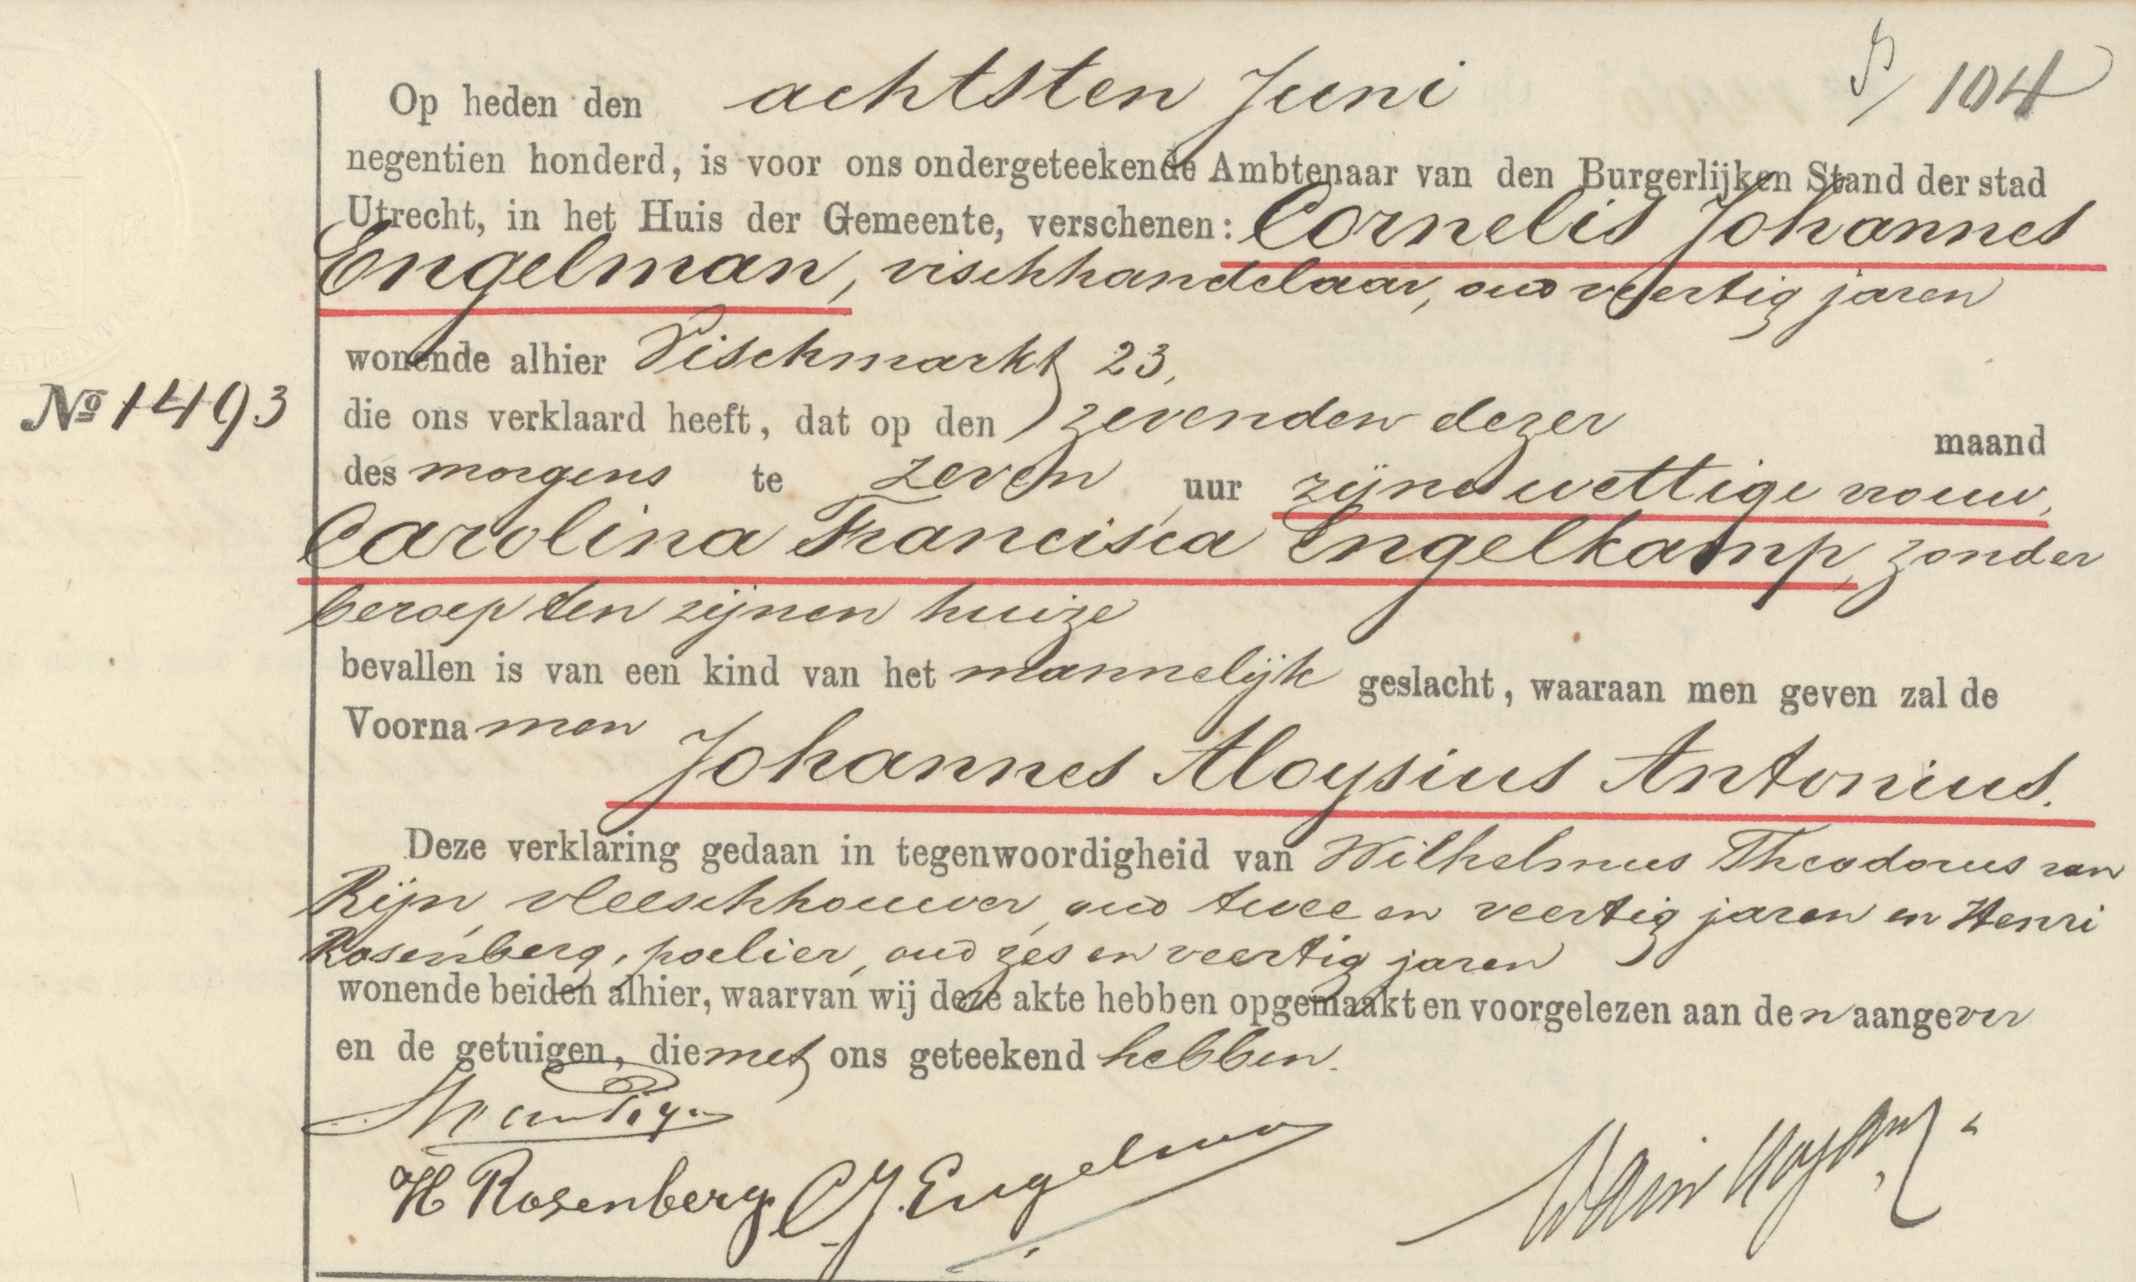 P/ 104
Op heden den achtsten Juni
negentien honderd, is voor ons ondergeteekende Ambtenaar van den Burgerlijken Stand der stad
Utrecht, in het Huis der Gemeente, verschenen: Cornelis Johannes
Engelman, vischhandelaar, oud veertig jaren
wonende alhier Vischmarkt 23,
No 1493
die ons verklaard heeft, dat op den zevenden dezer maand
des morgens te zeven uur zijne wettige vrouw,
Carolina Francisca Engelkamp, zonder
beroep ten zijnen huize
bevallen is van een kind van het mannelijk geslacht, waaraan men geven zal de
Voornamen Johannes Aloysius Antonius.
Deze verklaring gedaan in tegenwoordigheid van Wilhelmus Theodorus van
Rijn, vleeschhouwer, oud twee en veertig jaren en Henri
Rosenberg, poelier, oud zes en veertig jaren
wonende beiden alhier, waarvan wij deze akte hebben opgemaakt en voorgelezen aan den aangever
en de getuigen, die met ons geteekend hebben.
H Rosenberg. C. J. Engelman